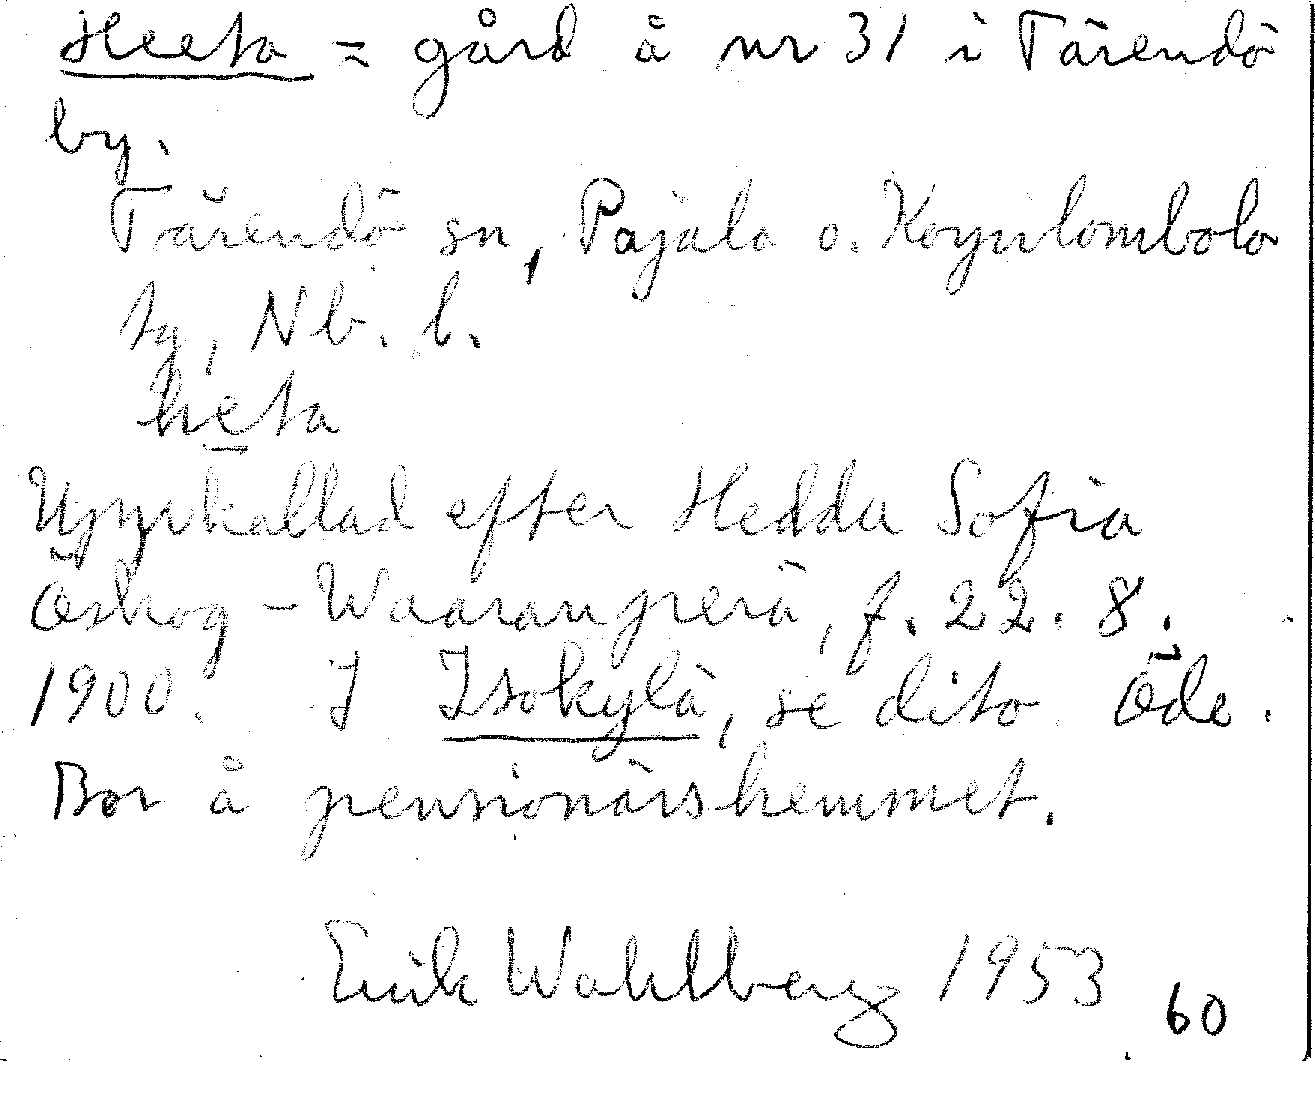 Heeta = gård å nr 31 i Tärendö
by.
Tärendö sn, Pajala o. Korpilombolo
tg, Nb. l.
he̱ta
Uppkallad efter Hedda Sofia
Öskog - Waaranperä, f. 22. 8.
1900. I Isokylä, se dito Öde.
Bor å pensionärshemmet.
Erik Wahlberg 1953
60